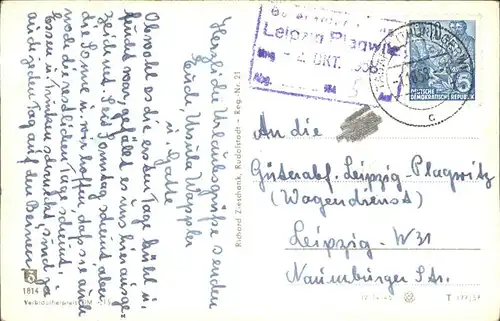 Herzliche Urlaubsgrüße senden
Euch Ursula Wappler
u. Gatte
Obwohl es die ersten Tage kühl u.
feucht war, gefällt es uns hier ausge-
zeichnet. Seit Sonntag scheint aber
die Sonne u. wir hoffen, daß sie auch
noch die restlichen Tage scheint.
Essen u. Trinken schmeckt, sind ja
auch jeden Tag auf den Beinen
Richard Zieschank, Rudolstadt - Reg.-Nr. 21
1814
Leipzig Plagwitz
2. OKT. 1958
DEUTSCHE
DEMOKRATISCHE REPUBLIK
c
An die
Güterabf. Leipzig-Plagwitz
(Wagendienst)
Leipzig-W31
Naumburger Str.